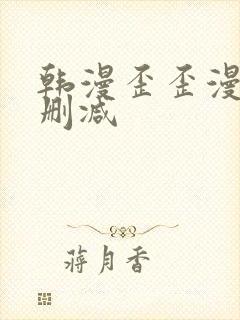 韩漫歪歪漫
删减
蒋月香